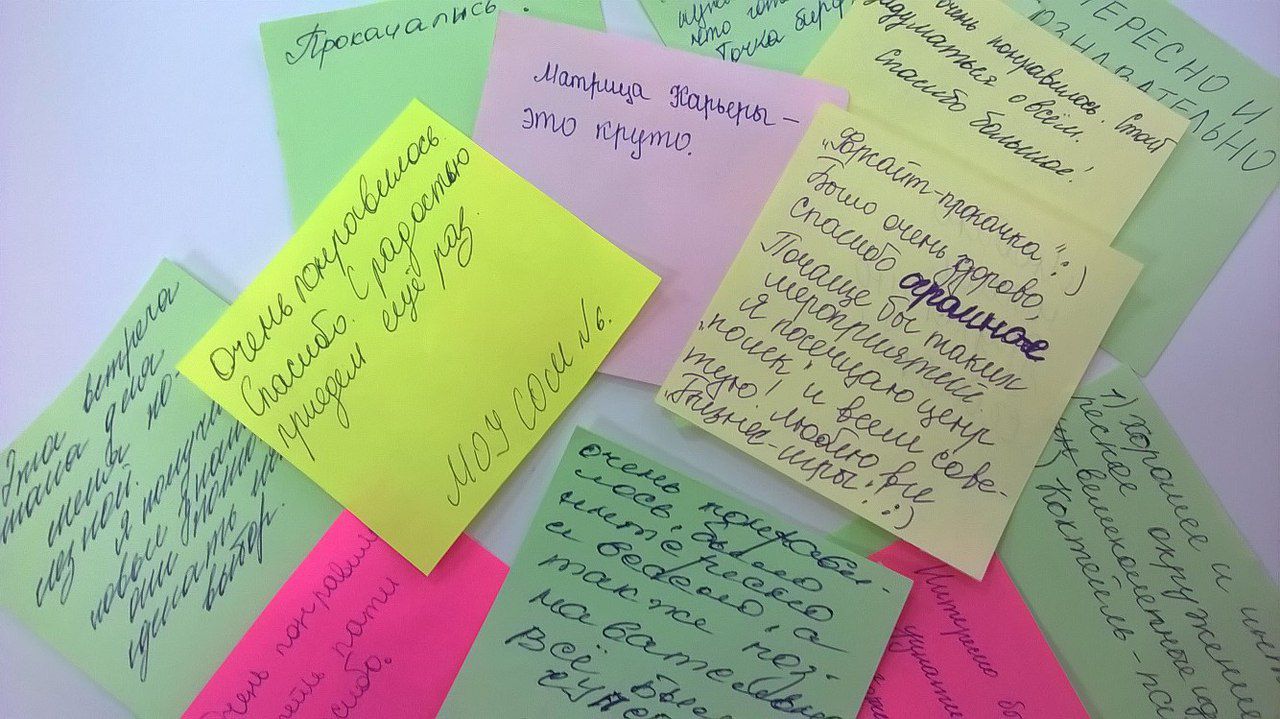 Прокачались!
что
Точка
очень понравилось. Стоит
задуматься о всём.
Спасибо большое!
ТЕРЕСНО И
ОЗНАВАТЕЛЬНО
Матрица Карьеры –
это круто.
Очень понравилось
Спасибо. С радостью
приедем ещё раз
МОУ СОСШ №6.
прокачка":)
Было очень здорово,
спасибо огромное
Почаще бы таких
мероприятий.
Я посещаю центр
„поиск" и всем сове-
тую! Люблю все
„Бизнес-игры":)
Эта встреча
стала для
меня по-
лезной.
Я получи
новые знан
они
сделать
выбор.
очень понрави-
лось, было
интересно
и весело, а
также поз-
навательно
Всё был
супе
Очень понравил
пати
сибо.
Интересно
1) хорошее и инт
ресная окружение
великолепные
Коктейль -